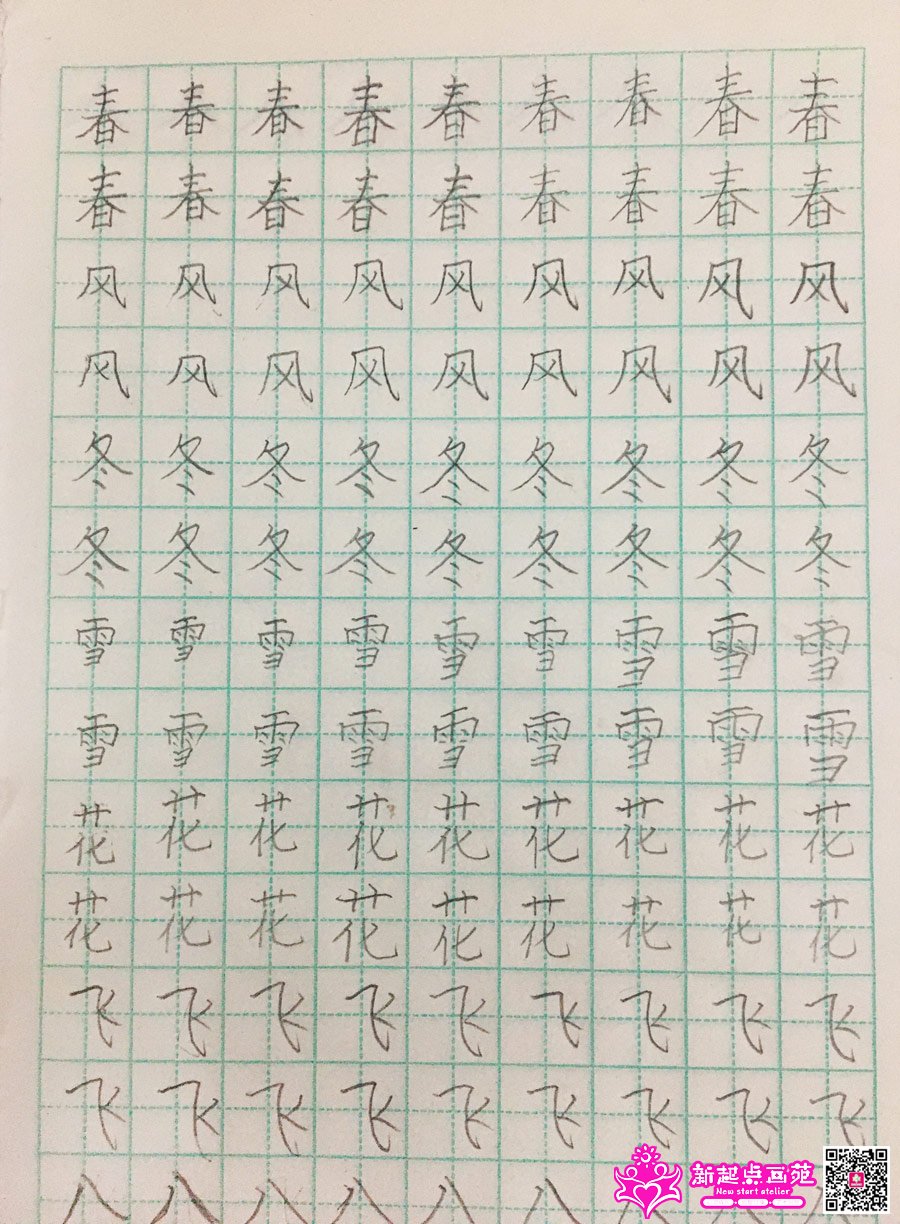 春春春春春春春春春
春春春春春春春春春
风风风风风风风风风
风风风风风风风风风
冬冬冬冬冬冬冬冬冬
冬冬冬冬冬冬冬冬冬
雪雪雪雪雪雪雪雪雪
雪雪雪雪雪雪雪雪雪
花花花花花花花花花
花花花花花花花花花
飞飞飞飞飞飞飞飞飞
飞飞飞飞飞飞飞飞飞
新起点画苑
New start atelier